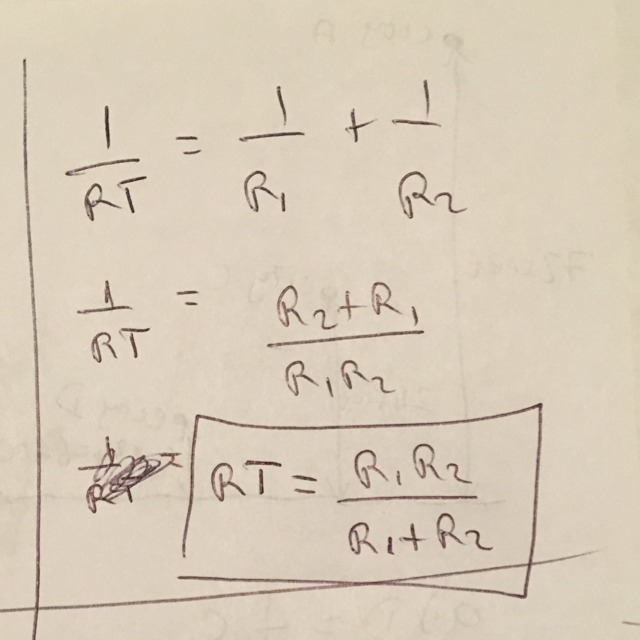 1/RT = 1/R1 + 1/R2
1/RT = R2+R1/R1R2
RT = R1R2/R1+R2